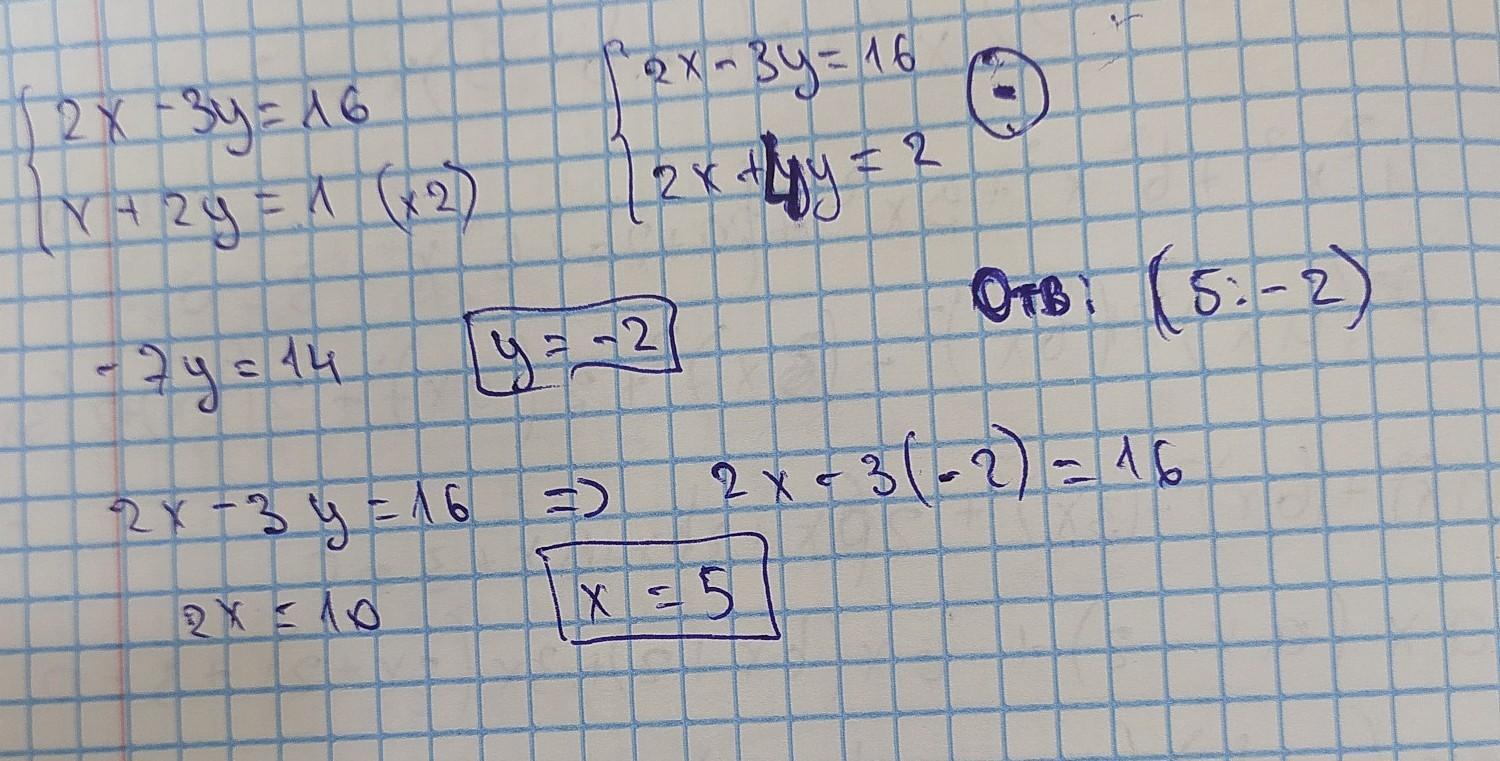 2x - 3y = 16
x + 2y = 1 (x2)
2x - 3y = 16 -
2x + 4y = 2
Отв: (5:-2)
-7y = 14 y = -2
2x - 3y = 16 => 2x - 3(-2) = 16
2x = 10 x = 5